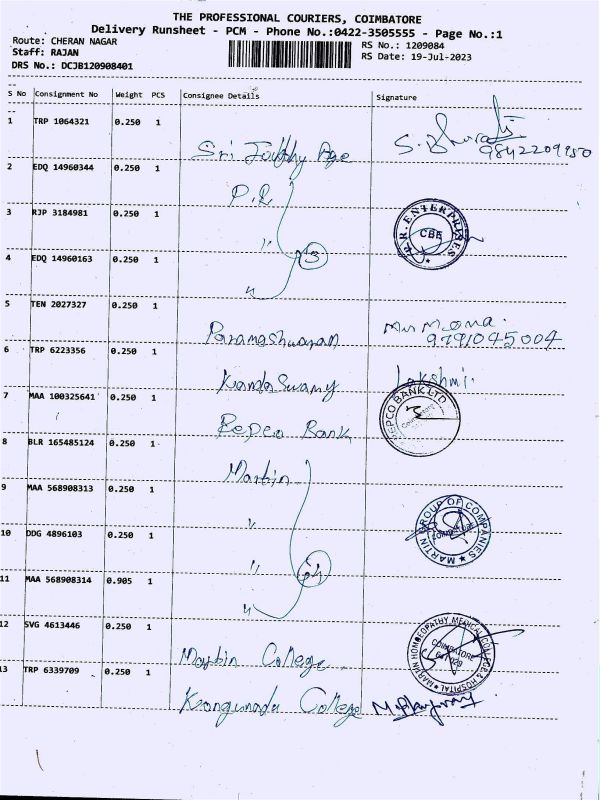 THE PROFESSIONAL COURIERS, COIMBATORE
Delivery Runsheet - PCM - Phone No.:0422-3505555 - Page No.:1
Route: CHERAN NAGAR
RS No.: 1209084
Staff: RAJAN
RS Date: 19-Jul-2023
DRS No.: DCJB120908401
S No Consignment No Weight PCS Consignee Details Signature
1 TRP 1064321 0.250 1 Sri
9842209950
2 EDQ 14960344 0.250 1 P.R
3 RJP 3184981 0.250 1 "
R.R. ENTERPRISES CBE
4 EDQ 14960163 0.250 1 "
5 TEN 2027327 0.250 1 Parameshwaran
9791045004
6 TRP 6223356 0.250 1 KandaSwamy Lakshmi
7 MAA 100325641 0.250 1 Repco Bank
REPCO BANK LTD
8 BLR 165485124 0.250 1 Martin
9 MAA 568908313 0.250 1 "
MARTIN GROUP OF COMPANIES COIMBATORE
10 DDG 4896103 0.250 1 "
11 MAA 568908314 0.905 1 "
12 SVG 4613446 0.250 1 Martin College
MARTIN HOMOEOPATHY MEDICAL COLLEGE & HOSPITAL COIMBATORE
13 TRP 6339709 0.250 1 Kongunadu College